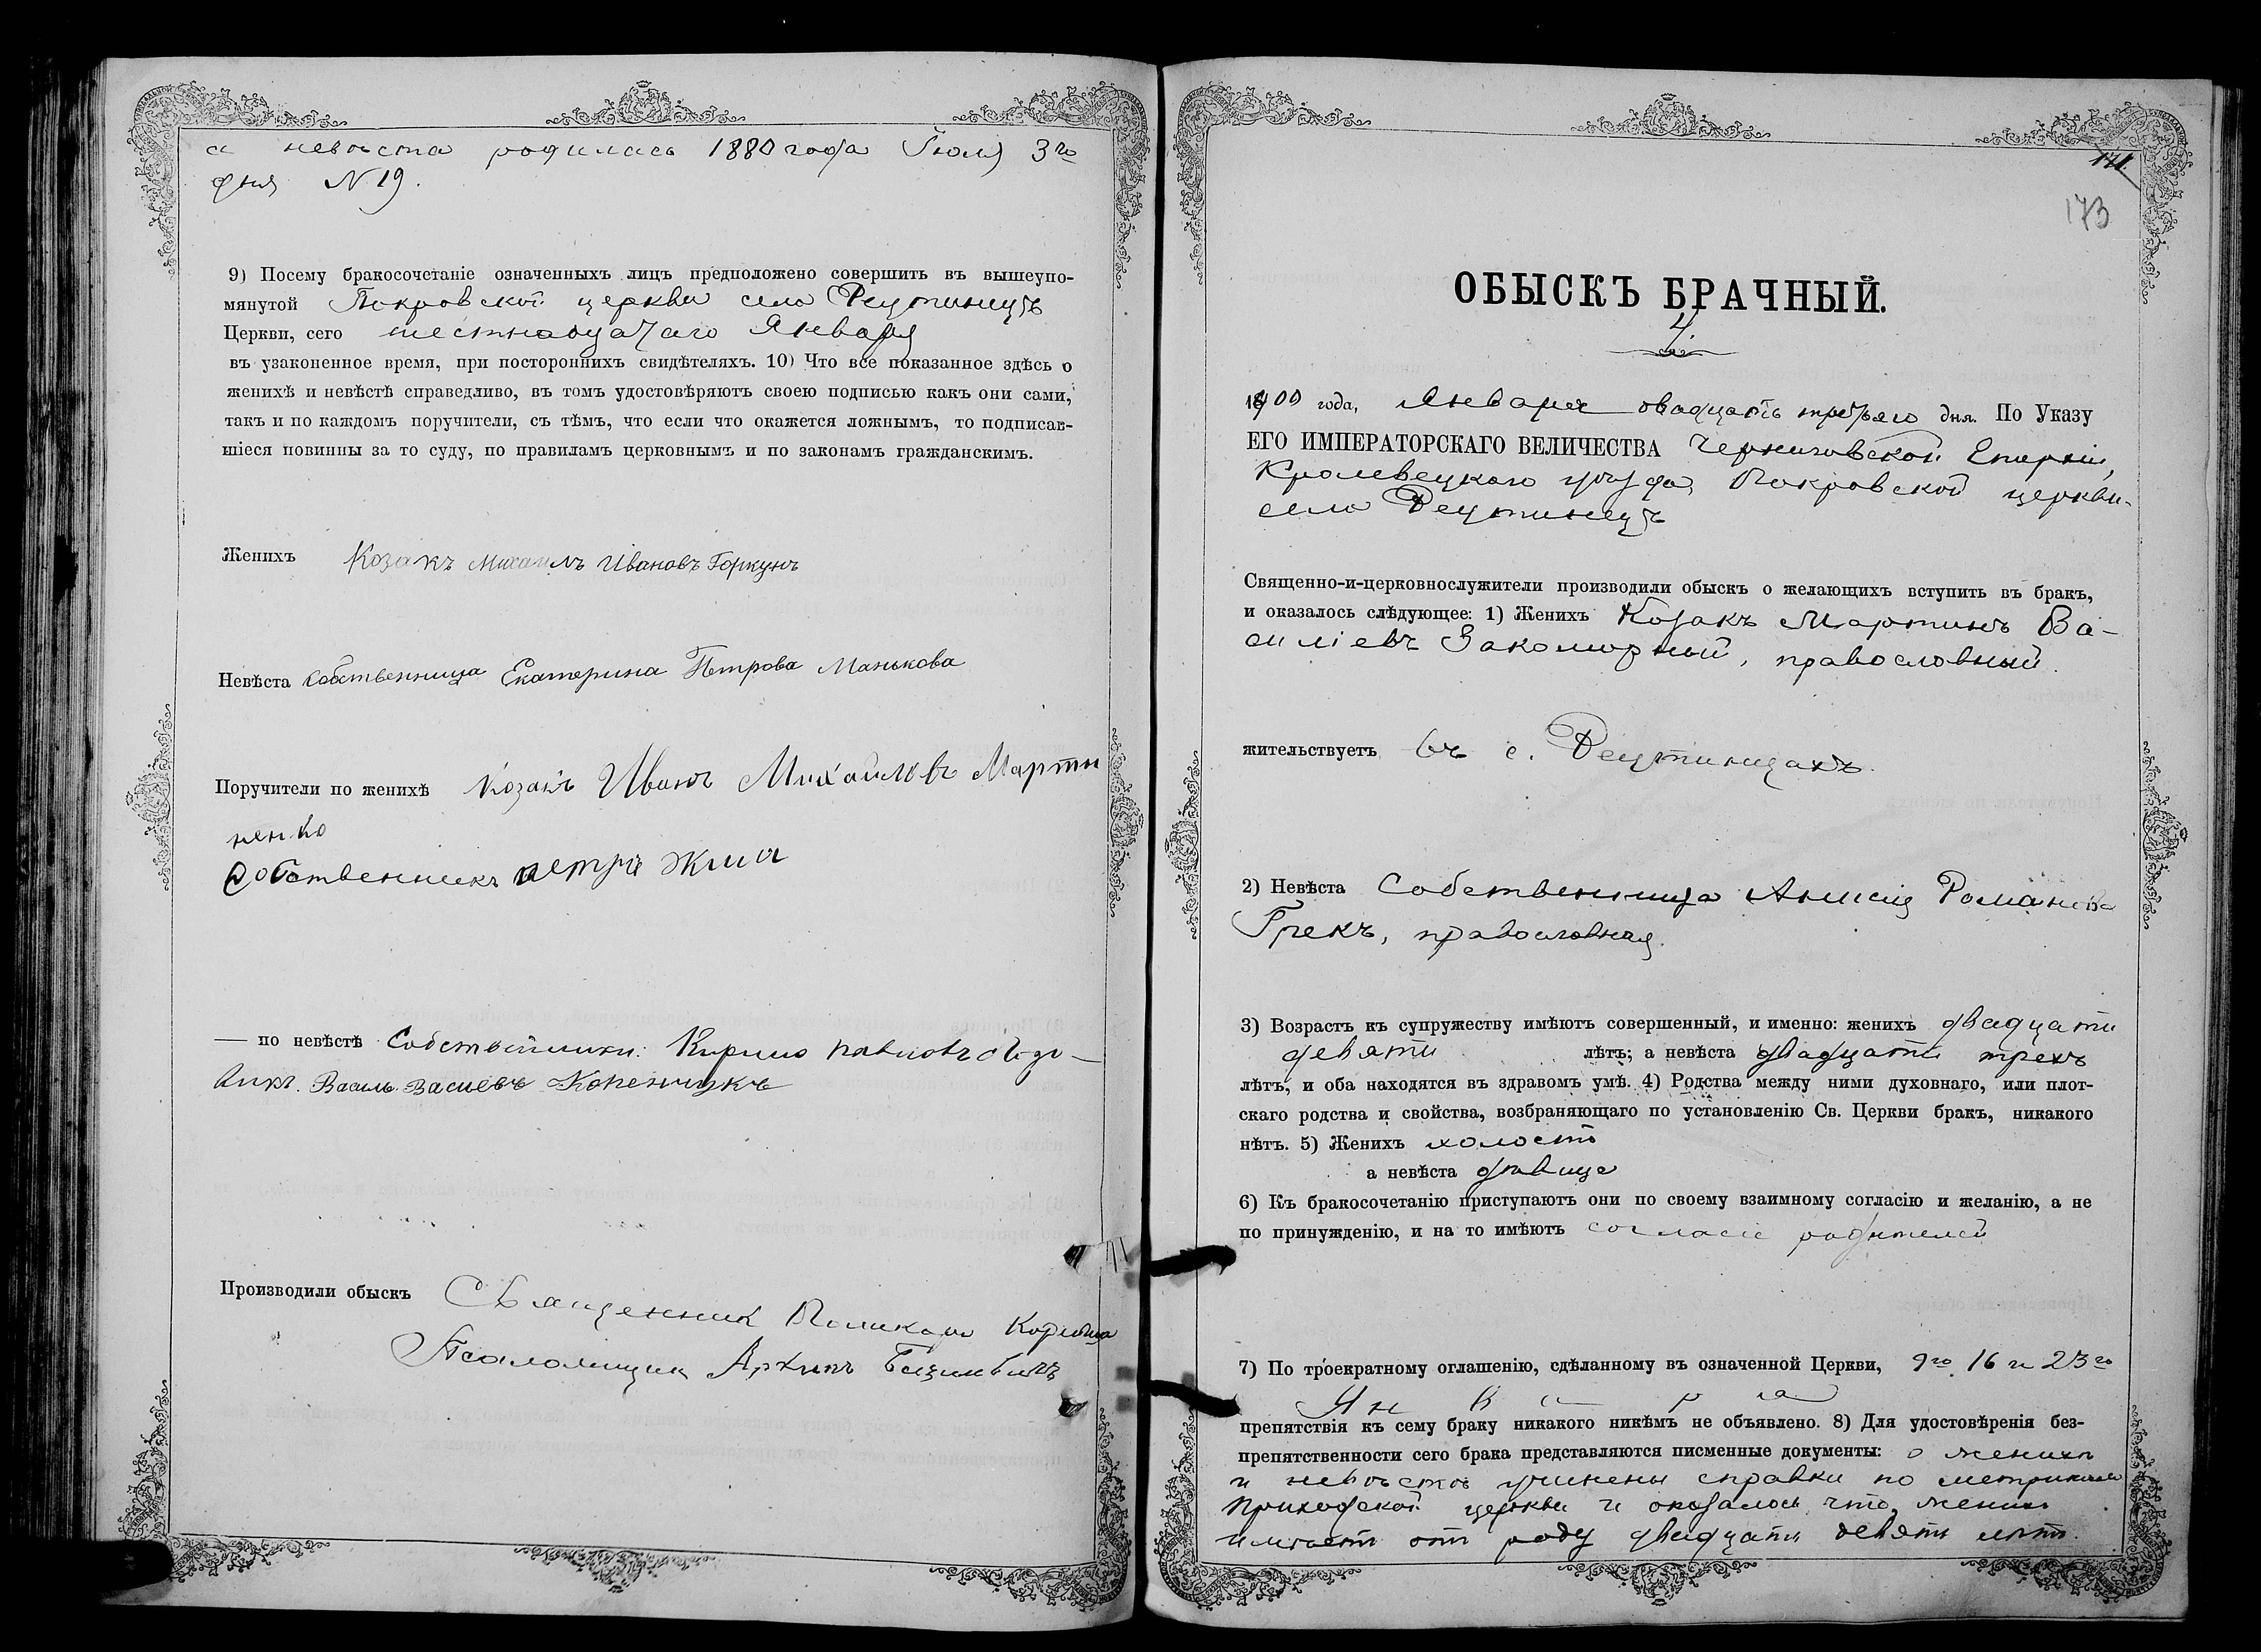 а невѣста родилась 1880 года Іюля 3го
дня N 19.
9) Посему бракосочетаніе означенныхъ лицъ предположено совершить въ вышеупо-
мянутой Покровской церкви села Реутинецъ
Церкви, сего шестнадцатаго Января
въ узаконенное время, при постороннихъ свидѣтеляхъ. 10) Что все показанное здѣсь о
женихѣ и невѣстѣ справедливо, въ томъ удостовѣряютъ своею подписью какъ они сами,
такъ и по каждомъ поручители, съ тѣмъ, что если что окажется ложнымъ, то подписав-
шіеся повинны за то суду, по правиламъ церковнымъ и по законамъ гражданскимъ.
Женихъ Козакъ Михаилъ Ивановъ Горкунъ
Невѣста собственница Екатерина Петрова Манькова
Поручители по женихѣ Козакъ Иванъ Михайловъ Марти
ненко
Собственникъ петръ
— по невѣстѣ Собственники: Кирило павловъ
Василь Васиевъ
Производили обыскъ Священник Поликарп
Псаломщик Архипъ
171.
173
ОБЫСКЪ БРАЧНЫЙ.
4.
1900 года, Января двадцать третьяго дня. По Указу
ЕГО ИМПЕРАТОРСКАГО ВЕЛИЧЕСТВА Черниговской Епархіи,
Кролевецкаго уѣзда, Покровской церкви
села Реутинецъ
Священно-и-церковнослужители производили обыскъ о желающихъ вступить въ бракъ,
и оказалось слѣдующее: 1) Женихъ Козакъ Мартинъ Ва-
силіевъ Закоморный, православный.
жительствуетъ въ с. Реутинцахъ.
2) Невѣста Собственница Анисія Романова
Грекъ, православная.
3) Возрастъ къ супружеству имѣютъ совершенный, и именно: женихъ двадцати
девяти лѣтъ; а невѣста двадцати трехъ
лѣтъ, и оба находятся въ здравомъ умѣ. 4) Родства между ними духовнаго, или плот-
скаго родства и свойства, возбраняющаго по установленію Св. Церкви бракъ, никакого
нѣтъ. 5) Женихъ холостъ
а невѣста дѣвица
6) Къ бракосочетанію приступаютъ они по своему взаимному согласію и желанію, а не
по принужденію, и на то имѣютъ согласіе родителей
7) По троекратному оглашенію, сдѣланному въ означенной Церкви, 9го, 16 и 23го
Января
препятствія къ сему браку никакого никѣмъ не объявлено. 8) Для удостовѣренія без-
препятственности сего брака представляются писменные документы: о женихѣ
и невѣстѣ учинены справки по метрикамъ
приходской церкви и оказалось что, жених
имѣетъ отъ роду двадцать девять лѣтъ.